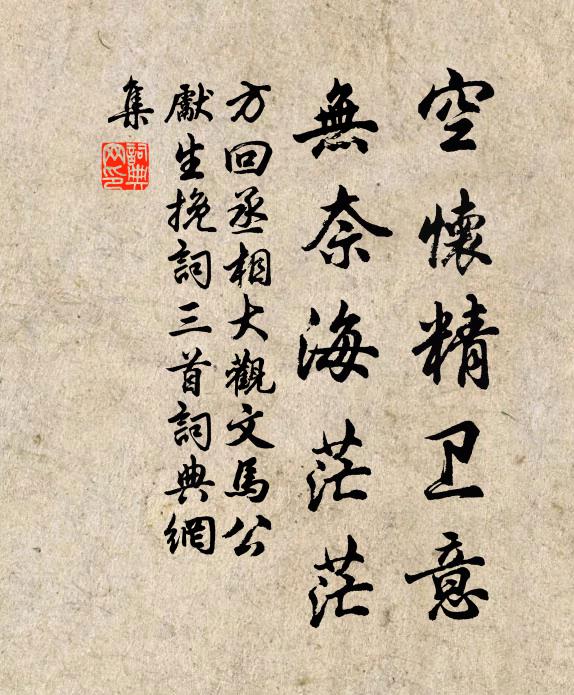 空懷精卫意
無奈海茫茫
方回丞相大觀文馬公
獻生挽詞三首詞典網
集
詞典網印